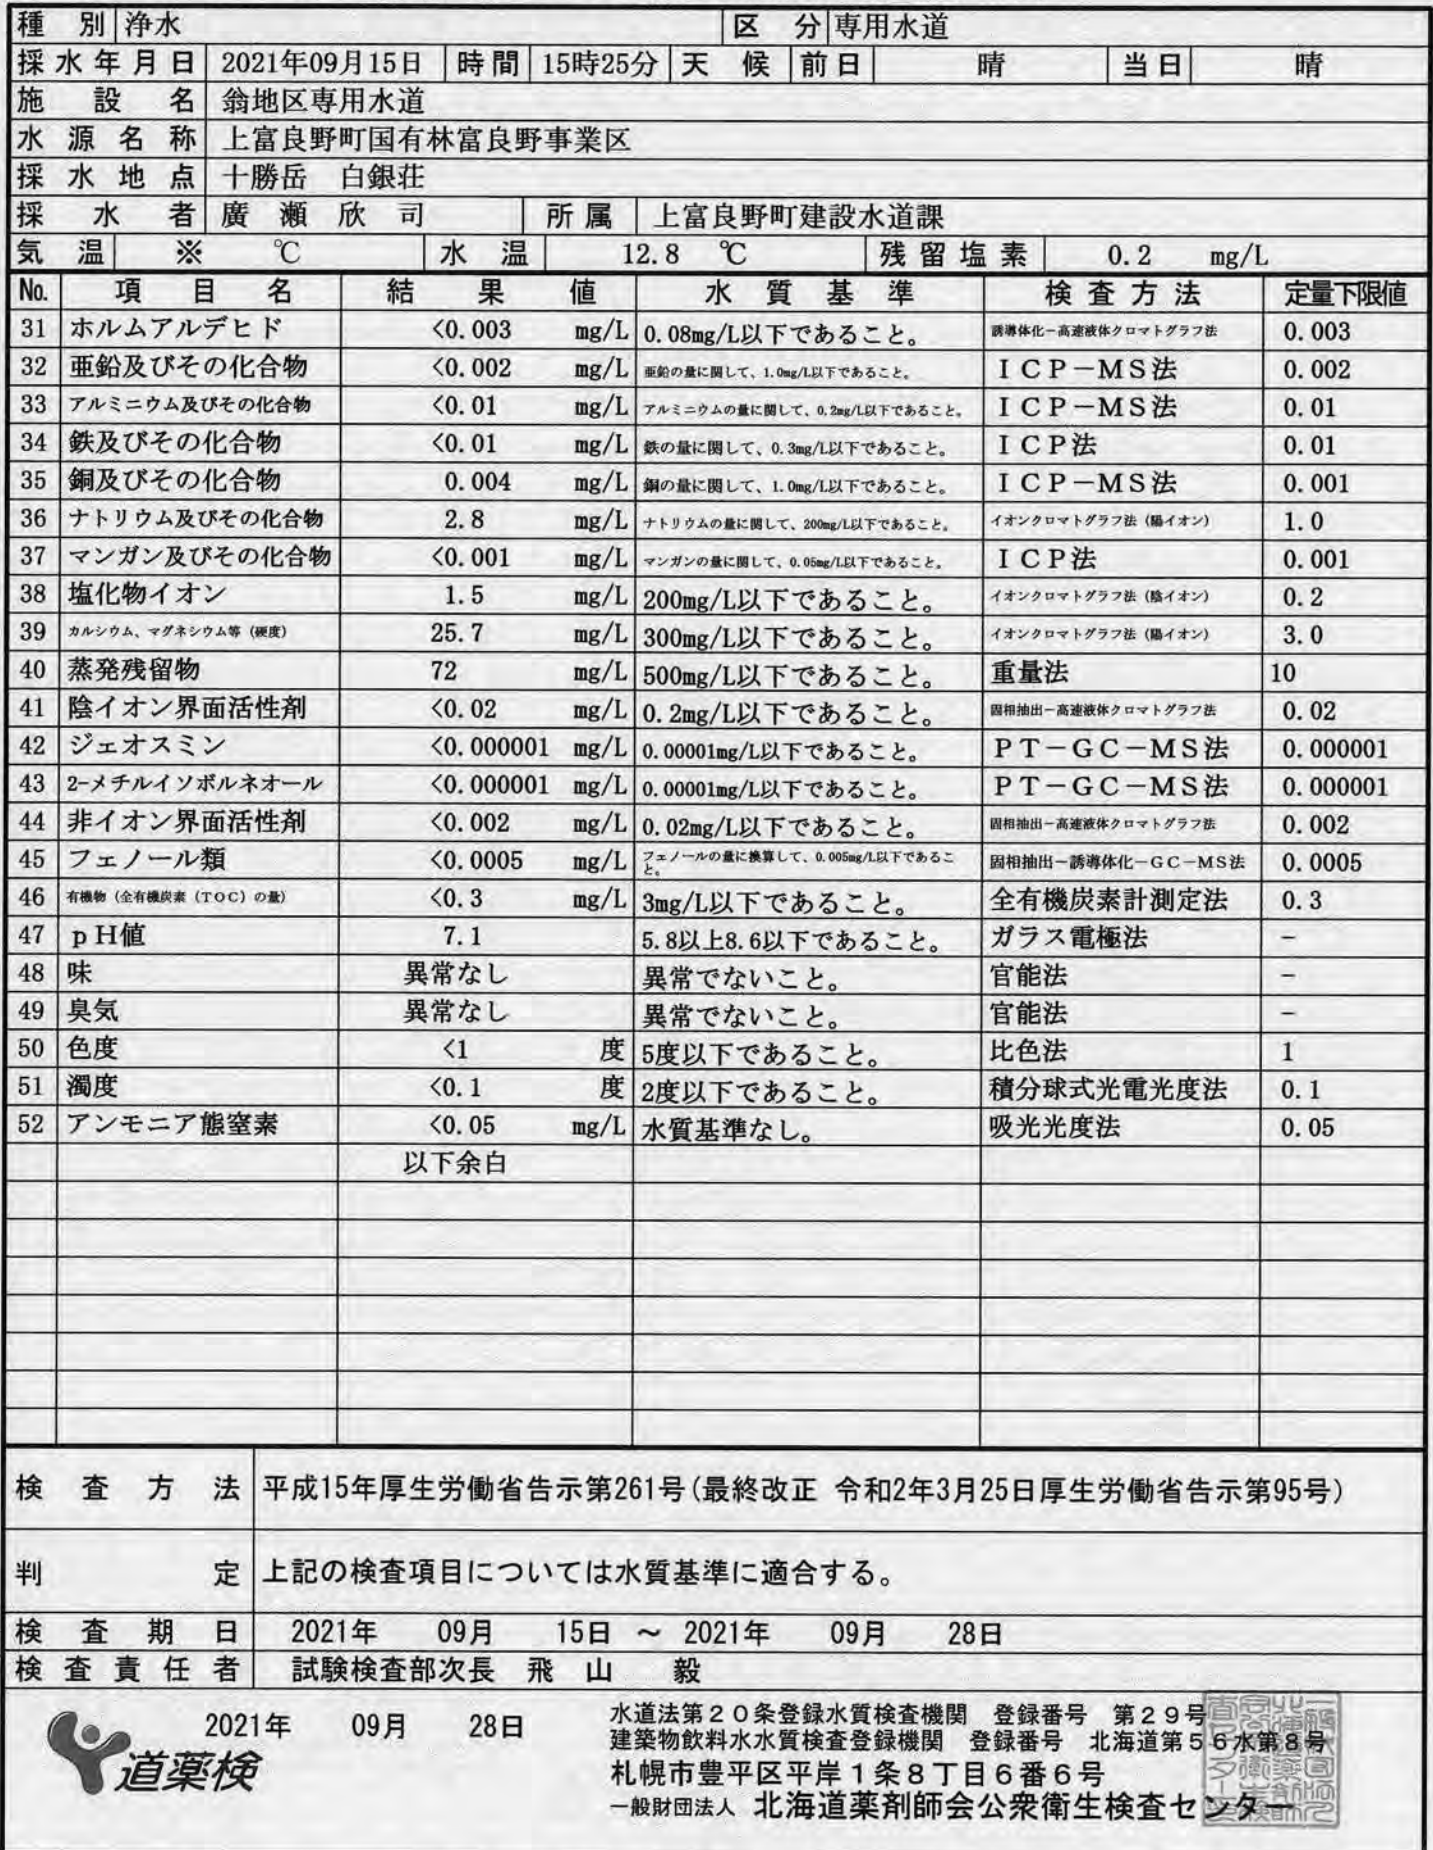 種 別 浄水 区 分 専用水道
採水年月日 2021年09月15日 時間 15時25分 天 候 前日 晴 当日 晴
施 設 名 翁地区専用水道
水 源 名 称 上富良野町国有林富良野事業区
採 水 地 点 十勝岳 白銀荘
採 水 者 廣 瀬 欣 司 所属 上富良野町建設水道課
気 温 ※ ℃ 水 温 12.8 ℃ 残留塩素 0.2 mg/L
No. 項 目 名 結 果 値 水 質 基 準 検 査 方 法 定量下限値
31 ホルムアルデヒド <0.003 mg/L 0.08mg/L以下であること。 誘導体化－高速液体クロマトグラフ法 0.003
32 亜鉛及びその化合物 <0.002 mg/L 亜鉛の量に関して、1.0mg/L以下であること。 ＩＣＰ－ＭＳ法 0.002
33 アルミニウム及びその化合物 <0.01 mg/L アルミニウムの量に関して、0.2mg/L以下であること。 ＩＣＰ－ＭＳ法 0.01
34 鉄及びその化合物 <0.01 mg/L 鉄の量に関して、0.3mg/L以下であること。 ＩＣＰ法 0.01
35 銅及びその化合物 0.004 mg/L 銅の量に関して、1.0mg/L以下であること。 ＩＣＰ－ＭＳ法 0.001
36 ナトリウム及びその化合物 2.8 mg/L ナトリウムの量に関して、200mg/L以下であること。 イオンクロマトグラフ法（陽イオン） 1.0
37 マンガン及びその化合物 <0.001 mg/L マンガンの量に関して、0.05mg/L以下であること。 ＩＣＰ法 0.001
38 塩化物イオン 1.5 mg/L 200mg/L以下であること。 イオンクロマトグラフ法（陰イオン） 0.2
39 カルシウム、マグネシウム等（硬度） 25.7 mg/L 300mg/L以下であること。 イオンクロマトグラフ法（陽イオン） 3.0
40 蒸発残留物 72 mg/L 500mg/L以下であること。 重量法 10
41 陰イオン界面活性剤 <0.02 mg/L 0.2mg/L以下であること。 固相抽出－高速液体クロマトグラフ法 0.02
42 ジェオスミン <0.000001 mg/L 0.00001mg/L以下であること。 ＰＴ－ＧＣ－ＭＳ法 0.000001
43 2-メチルイソボルネオール <0.000001 mg/L 0.00001mg/L以下であること。 ＰＴ－ＧＣ－ＭＳ法 0.000001
44 非イオン界面活性剤 <0.002 mg/L 0.02mg/L以下であること。 固相抽出－高速液体クロマトグラフ法 0.002
45 フェノール類 <0.0005 mg/L フェノールの量に換算して、0.005mg/L以下であること。 固相抽出－誘導体化－ＧＣ－ＭＳ法 0.0005
46 有機物（全有機炭素（ＴＯＣ）の量） <0.3 mg/L 3mg/L以下であること。 全有機炭素計測定法 0.3
47 ｐＨ値 7.1 5.8以上8.6以下であること。 ガラス電極法 −
48 味 異常なし 異常でないこと。 官能法 −
49 臭気 異常なし 異常でないこと。 官能法 −
50 色度 <1 度 5度以下であること。 比色法 1
51 濁度 <0.1 度 2度以下であること。 積分球式光電光度法 0.1
52 アンモニア態窒素 <0.05 mg/L 水質基準なし。 吸光光度法 0.05
以下余白
検 査 方 法 平成15年厚生労働省告示第261号(最終改正 令和2年3月25日厚生労働省告示第95号)
判 定 上記の検査項目については水質基準に適合する。
検 査 期 日 2021年 09月 15日 ～ 2021年 09月 28日
検 査 責 任 者 試験検査部次長 飛 山 毅
2021年 09月 28日
道薬検
水道法第２０条登録水質検査機関 登録番号 第２９号
建築物飲料水水質検査登録機関 登録番号 北海道第５６水第８号
札幌市豊平区平岸１条８丁目６番６号
一般財団法人 北海道薬剤師会公衆衛生検査センター